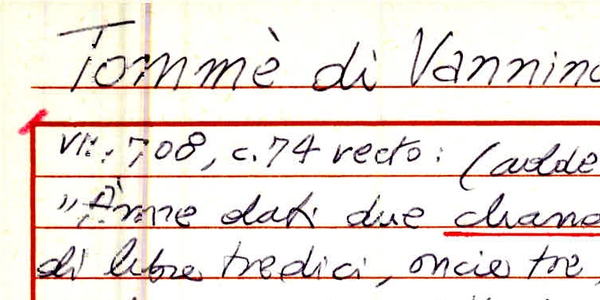 Tommè di Vannino
VII: 708, c.74 recto: (adde
"Ànne dati due chand
di libre tredici, oncie tre,